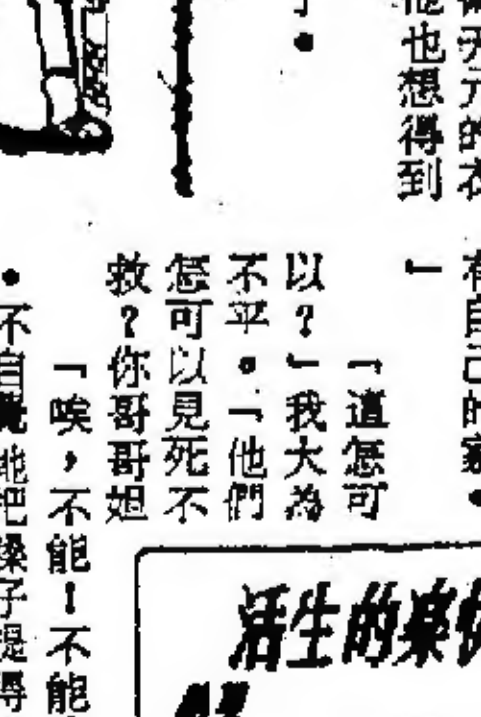 他也想得到
的衣
有自己的家。
」
「這怎可
以？」我大為
不平。「他們
怎可以見死不
救？你哥哥姐
「唉，不能！不能
。不自覺地把嗓子提得
活生的楽快